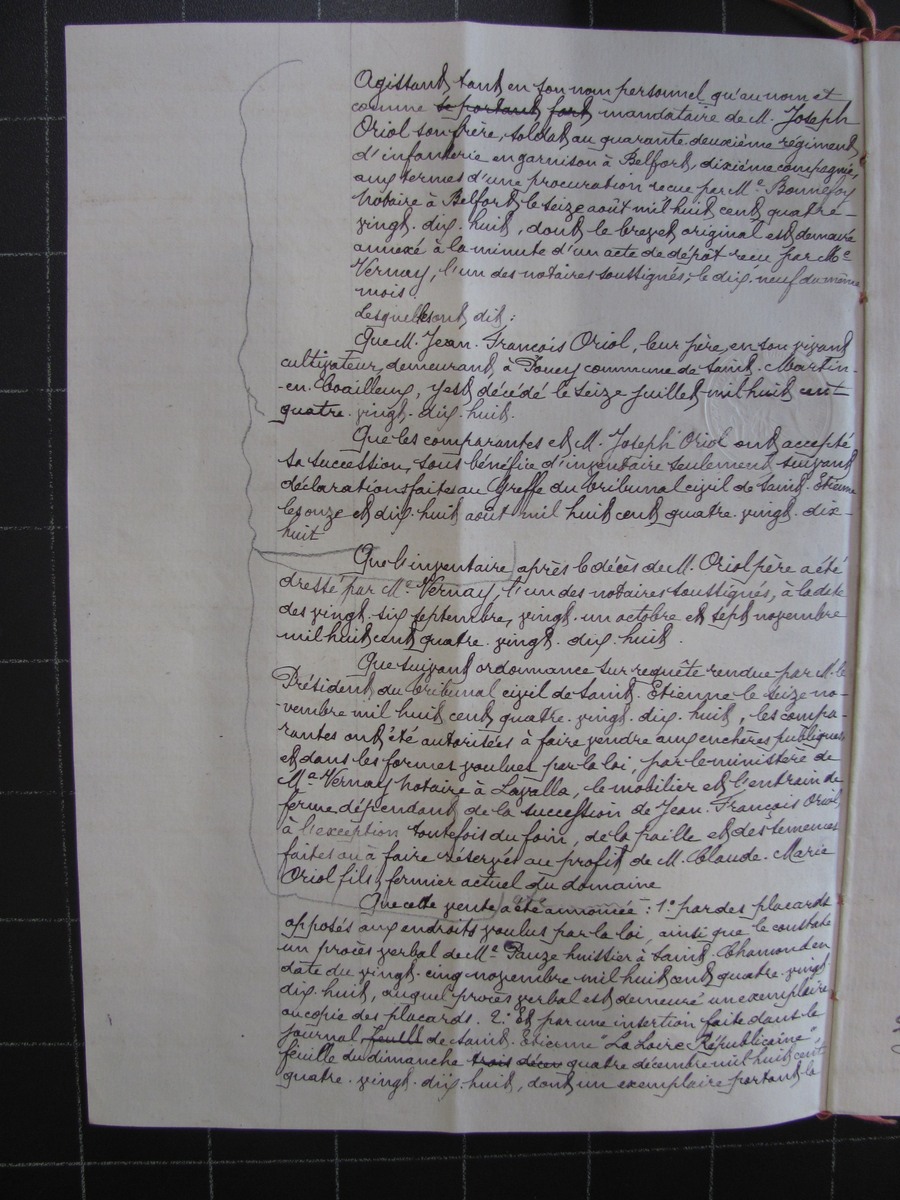 Agissant, tant en son nom personnel qu'au nom et
comme se portant fort mandataire de M. Joseph
Oriol son frère, soldat au quarante deuxième régiment
d'infanterie en garnison à Belfort, dixième compagnie,
aux termes d'une procuration reçue par Me Bonnefoy
notaire à Belfort le seize août mil huit cent quatre-
vingt-dix-huit, dont le brevet original est demeuré
annexé à la minute d'un acte de dépôt reçu par Me
Vernay, l'un des notaires soussignés, le dix-neuf du même
mois.
Lesquelles ont dit:
Que M. Jean-François Oriol, leur père, en son vivant
cultivateur, demeurant à commune de Saint-Martin-
-en-Coailleux, y est décédé le seize juillet mil huit cent-
quatre-vingt-dix-huit.
Que les comparantes et M. Joseph Oriol ont accepté
sa succession, sous bénéfice d'inventaire seulement suivant
déclarations faites au Greffe du tribunal civil de Saint-Etienne
les onze et dix-huit août mil huit cent quatre-vingt-dix-
huit
Que l'inventaire après le décès de M. Oriol père a été
dressé par Me Vernay, l'un des notaires soussignés, à la date
des vingt-six septembre, vingt-un octobre et sept novembre
mil huit cent quatre-vingt-dix-huit.
Que suivant ordonnance sur requête rendue par M. le
Président du tribunal civil de Saint-Etienne le seize no-
-vembre mil huit cent quatre-vingt-dix-huit, les compa-
rantes ont été autorisées à faire vendre aux enchères publiques
et dans les formes voulues par la loi par le ministère de
Me Vernay notaire à Lavalla, le mobilier et l'entrain de
ferme dépendant de la succession de Jean-François Oriol,
à l'exception toutefois du foin, de la paille et des semences
faites ou à faire réservés au profit de M. Claude-Marie
Oriol fils, fermier actuel du domaine
Que cette vente a été annoncée: 1° par des placards
apposés aux endroits voulus par la loi, ainsi que le constate
un procès verbal de Me Pauze huissier à Saint-Chamond en
date du vingt-cinq novembre mil huit cent quatre-vingt-
dix-huit, auquel procès verbal est demeuré un exemplaire
ou copie des placards. 2° Et par une insertion faite dans le
journal feuille de Saint-Etienne "La Loire Républicaine",
feuille du dimanche trois décem quatre décembre mil huit cent
quatre-vingt-dix-huit, dont un exemplaire portant la